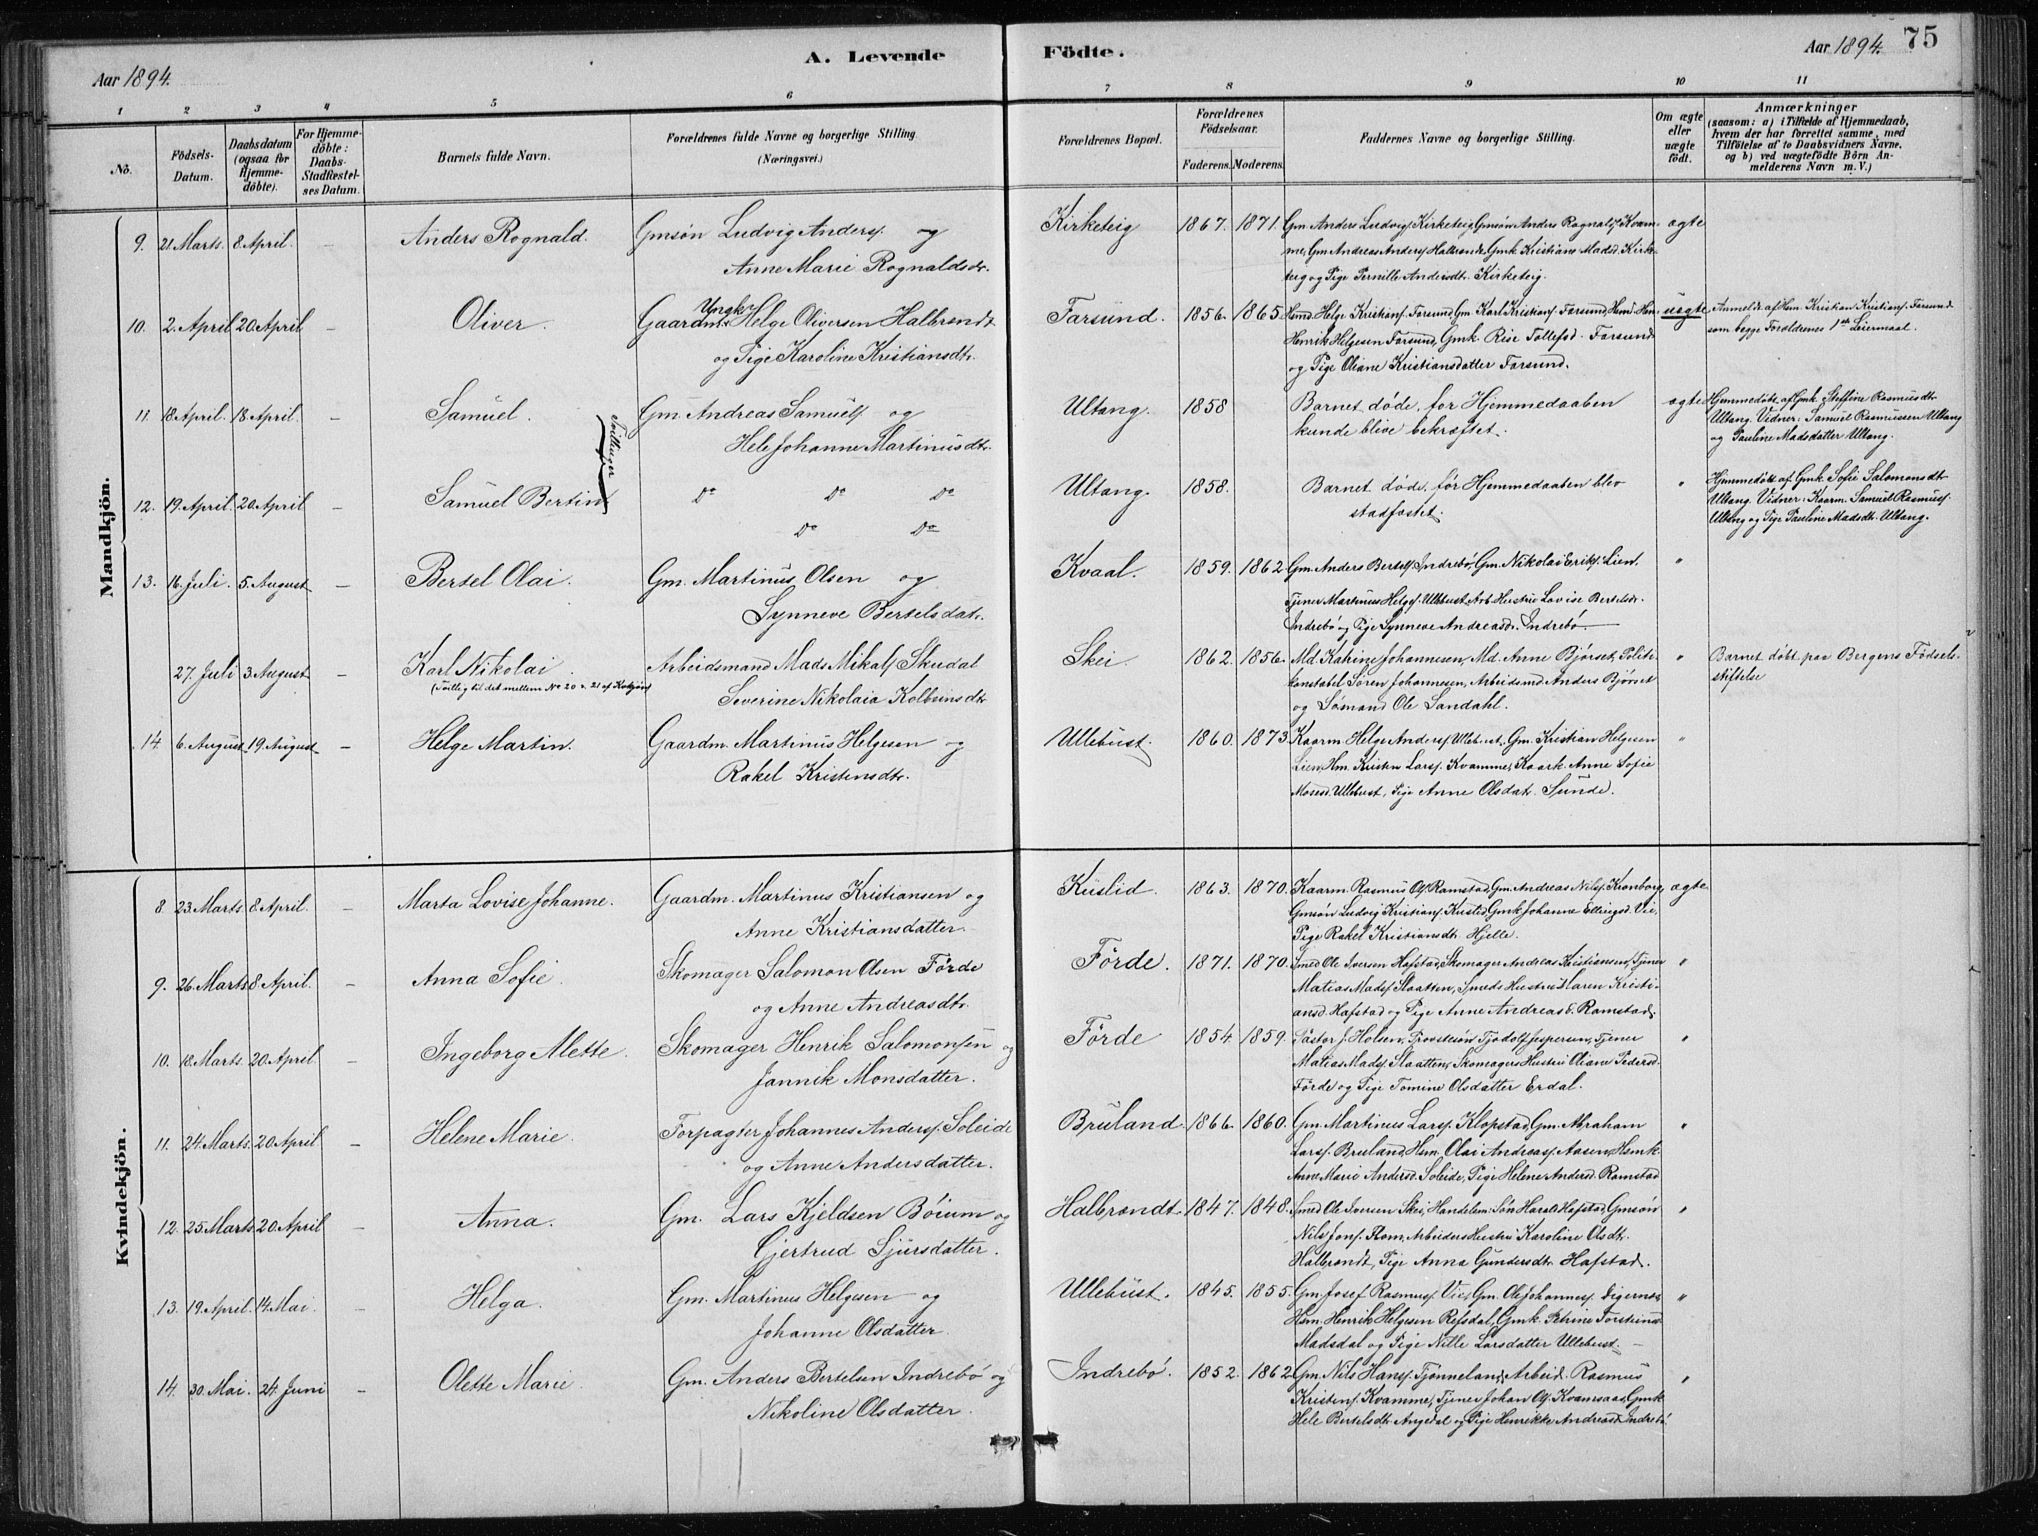 Aar 1894.
A. Levende
Födte.
Aar 1894.
75
1 2 3 4 5 6 7 8 9 10 11
No.
Födsels-Datum.
Daabsdatum (ogsaa for Hjemme-döbte).
For Hjemme-döbte: Daabs-Stadfæstel-ses Datum.
Barnets fulde Navn.
Forældrenes fulde Navne og borgerlige Stilling.
(Næringsvei.)
Forældrenes Bopæl.
Forældrenes Födselsaar.
Faderens. Moderens.
Faddernes Navne og borgerlige Stilling.
Om ægte eller uægte födt.
Anmærkninger
(saasom: a) i Tilfælde af Hjemmedaab,
hvem der har forrettet samme, med
Tilföielse af to Daabsvidners Navne,
og b) ved uægtefödte Börn An-
melderens Navn m. V.)
Mandkjön.
9. 21. Marts. 8. April. — Anders Rognald. Gmsøn Ludvig Anders. og Kirketeig 1867. 1871. Gm. Anders Ludvigs. Kirketeig, Gmsøn Anders Rognalds. Kvam- ægte
Anne Marie Rognaldsdr. me, Gm. Andreas Anders. Halbrendt, Gmk. Kristiane Madsd. Kirke-
teig og Pige Pernille Andersdtr. Kirketeig.
10. 2. April 20. April — Oliver. Ungk. Gaardm. Helge Oliversen Halbrendt Farsund. 1856. 1865. Hmd. Helge Kristians. Farsund, Gm. Karl Kristians. Farsund, uægte Anmeldt af Hm. Kristian Kristians. Farsund
og Pige Karoline Kristiansdtr. Henrik Helgesen Farsund, Gmk. Tollefsd. Farsund som begge Forældrenes 1ste Leiermaal.
og Pige Oliane Kristiansdatter Farsund.
11. 18. April. 18. April. — Samuel. Gm. Andreas Samuels. og Ultang. 1858 Barnet døde, før Hjemmedaaben ægte Hjemmedøbt af Gmk. Steffine Rasmusdtr.
Tvillinger
Hele Johanne Martinusdtr. kunde blive bekræftet. Ultang. Vidner: Samuel Rasmussen Ultang
og Pauline Madsdatter Ultang.
12. 19. April. 20. April — Samuel Bertin Do Do Do Ultang. 1858. Barnet døde, før Hjemmedaaben blev " Hjemmedøbt af Gmk. Sofie Salomonsdt.
Do Do stadfæstet. Ultang. Vidner: Kaarm. Samuel Rasmuss.
Ultang og Pige Pauline Madsdt. Ultang.
13. 16. Juli. 5. August — Bertel Olai. Gm. Martinus Olsen og Kvaal. 1859. 1862. Gm. Anders Bertels. Indrebö, Gm. Nikolai Eriks. Lien, "
Synneve Bertelsdat. Tjener Martinus Helges. Ullebust, Arb. Hustru Lovise Bertelsdr.
Indrebö og Pige Synneve Andreasdr. Indrebö.
27. Juli 3. August — Karl Nikolai Arbeidsmand Mads Mikals. Skudal Skei 1862. 1856. Md. Katrine Johannesen, Md. Anne Bjørset, Politi- " Barnet døbt paa Bergens Fødsels-
(Tvilling til det mellem No 20 & 21 af Kvkjøn) Severine Nikolaia Kolbeinsdtr. konstabel Sören Johannesen, Arbeidsmd. Anders Bjørset stiftelse
og Sömand Ole Sandahl.
14. 6. August 19. August — Helge Martin. Gaardm. Martinus Helgesen og Ullebust. 1860. 1873. Kaarm. Helge Anders. Ullebust, Gm. Kristian Helgesen "
Rakel Kristensdtr. Lien, Hm. Kristen Lars. Kvamme, Kaark. Anne Sofie
Monsd. Ullebust, Pige Anne Olsdat. Sunde.
Kvindekjön.
8. 23. Marts. 8. April. — Marta Lovise Johanne. Gaardm. Martinus Kristiansen og Kuslid. 1863. 1870. Kaarm. Rasmus Ols. Ramstad, Gm. Andreas Nils. Kronborg, ægte
Anne Kristiansdatter. Gmsøn Ludvig Kristians. Kuslid, Gmk. Johanne Ellingsd. Vie,
Pige Rakel Kristiansdtr. Hjelle.
9. 26. Marts 8. April. — Anna Sofie. Skomager Salomon Olsen Förde Förde. 1871. 1870. Smed Ole Iversen Hafstad, Skomager Andreas Kristiansen, Tjener "
og Anne Andreasdtr. Matias Mads. Slaatten, Smeds Hustru Maren Kristi-
ansd. Hafstad og Pige Anne Andreasd. Ramstad.
10. 18. Marts. 20. April — Ingeborg Alette. Skomager Henrik Salomonsen og Förde 1854 1859. Pastor J. Holsen, Provstesön Tjodolf Jespersen, Tjener "
Jannik Monsdatter. Matias Mads. Slaatten, Skomagers Hustru Oliane Pedersd.
Förde og Pige Tomine Olsdatter Erdal.
11. 24. Marts. 20. April — Helene Marie. Forpagter Johannes Anders. Soleide Bruland. 1866. 1860. Gm. Martinus Lars. Klopstad, Gm. Abraham "
og Anne Andersdatter. Lars. Bruland, Hsm. Olai Andreas. Aasen, Hsmk.
Anne Marie Andersd. Soleide, Pige Helene Andersd. Ramstad
12. 25. Marts. 20. April — Anna. Gm. Lars Kjeldsen Böium og Halbrendt. 1847. 1848. Smed Ole Iversen Skei, Handelsm. Søn Harald Hafstad, Gmsøn "
Gjertrud Sjursdatter. Nils Jons. Flom, Arbeiders Hustru Karoline Olsdt.
Halbrendt, Pige Anna Gundersdtr. Hafstad.
13. 19. April. 14. Mai. — Helga. Gm. Martinus Helgesen og Ullebust. 1845. 1855. Gm. Josef Rasmus. Vie, Gm. Ole Johannes. Digernes "
Johanne Olsdatter. Hsm. Henrik Helgesen Refsdal, Gmk. Petrine
Madsdal og Pige Nille Larsdatter Ullebust.
14. 30. Mai. 24. Juni — Olette Marie. Gm. Anders Bertelsen Indrebö og Indrebö. 1852. 1862. Gm. Nils Hans. Tjönneland, Arbeid. Rasmus "
Nikoline Olsdatter. Kristens. Kvamme, Tjener Johan Ols. Kvamsaas, Gmk.
Hele Bertelsdt. Angedal og Pige Henrikke Andreasd. Indrebö